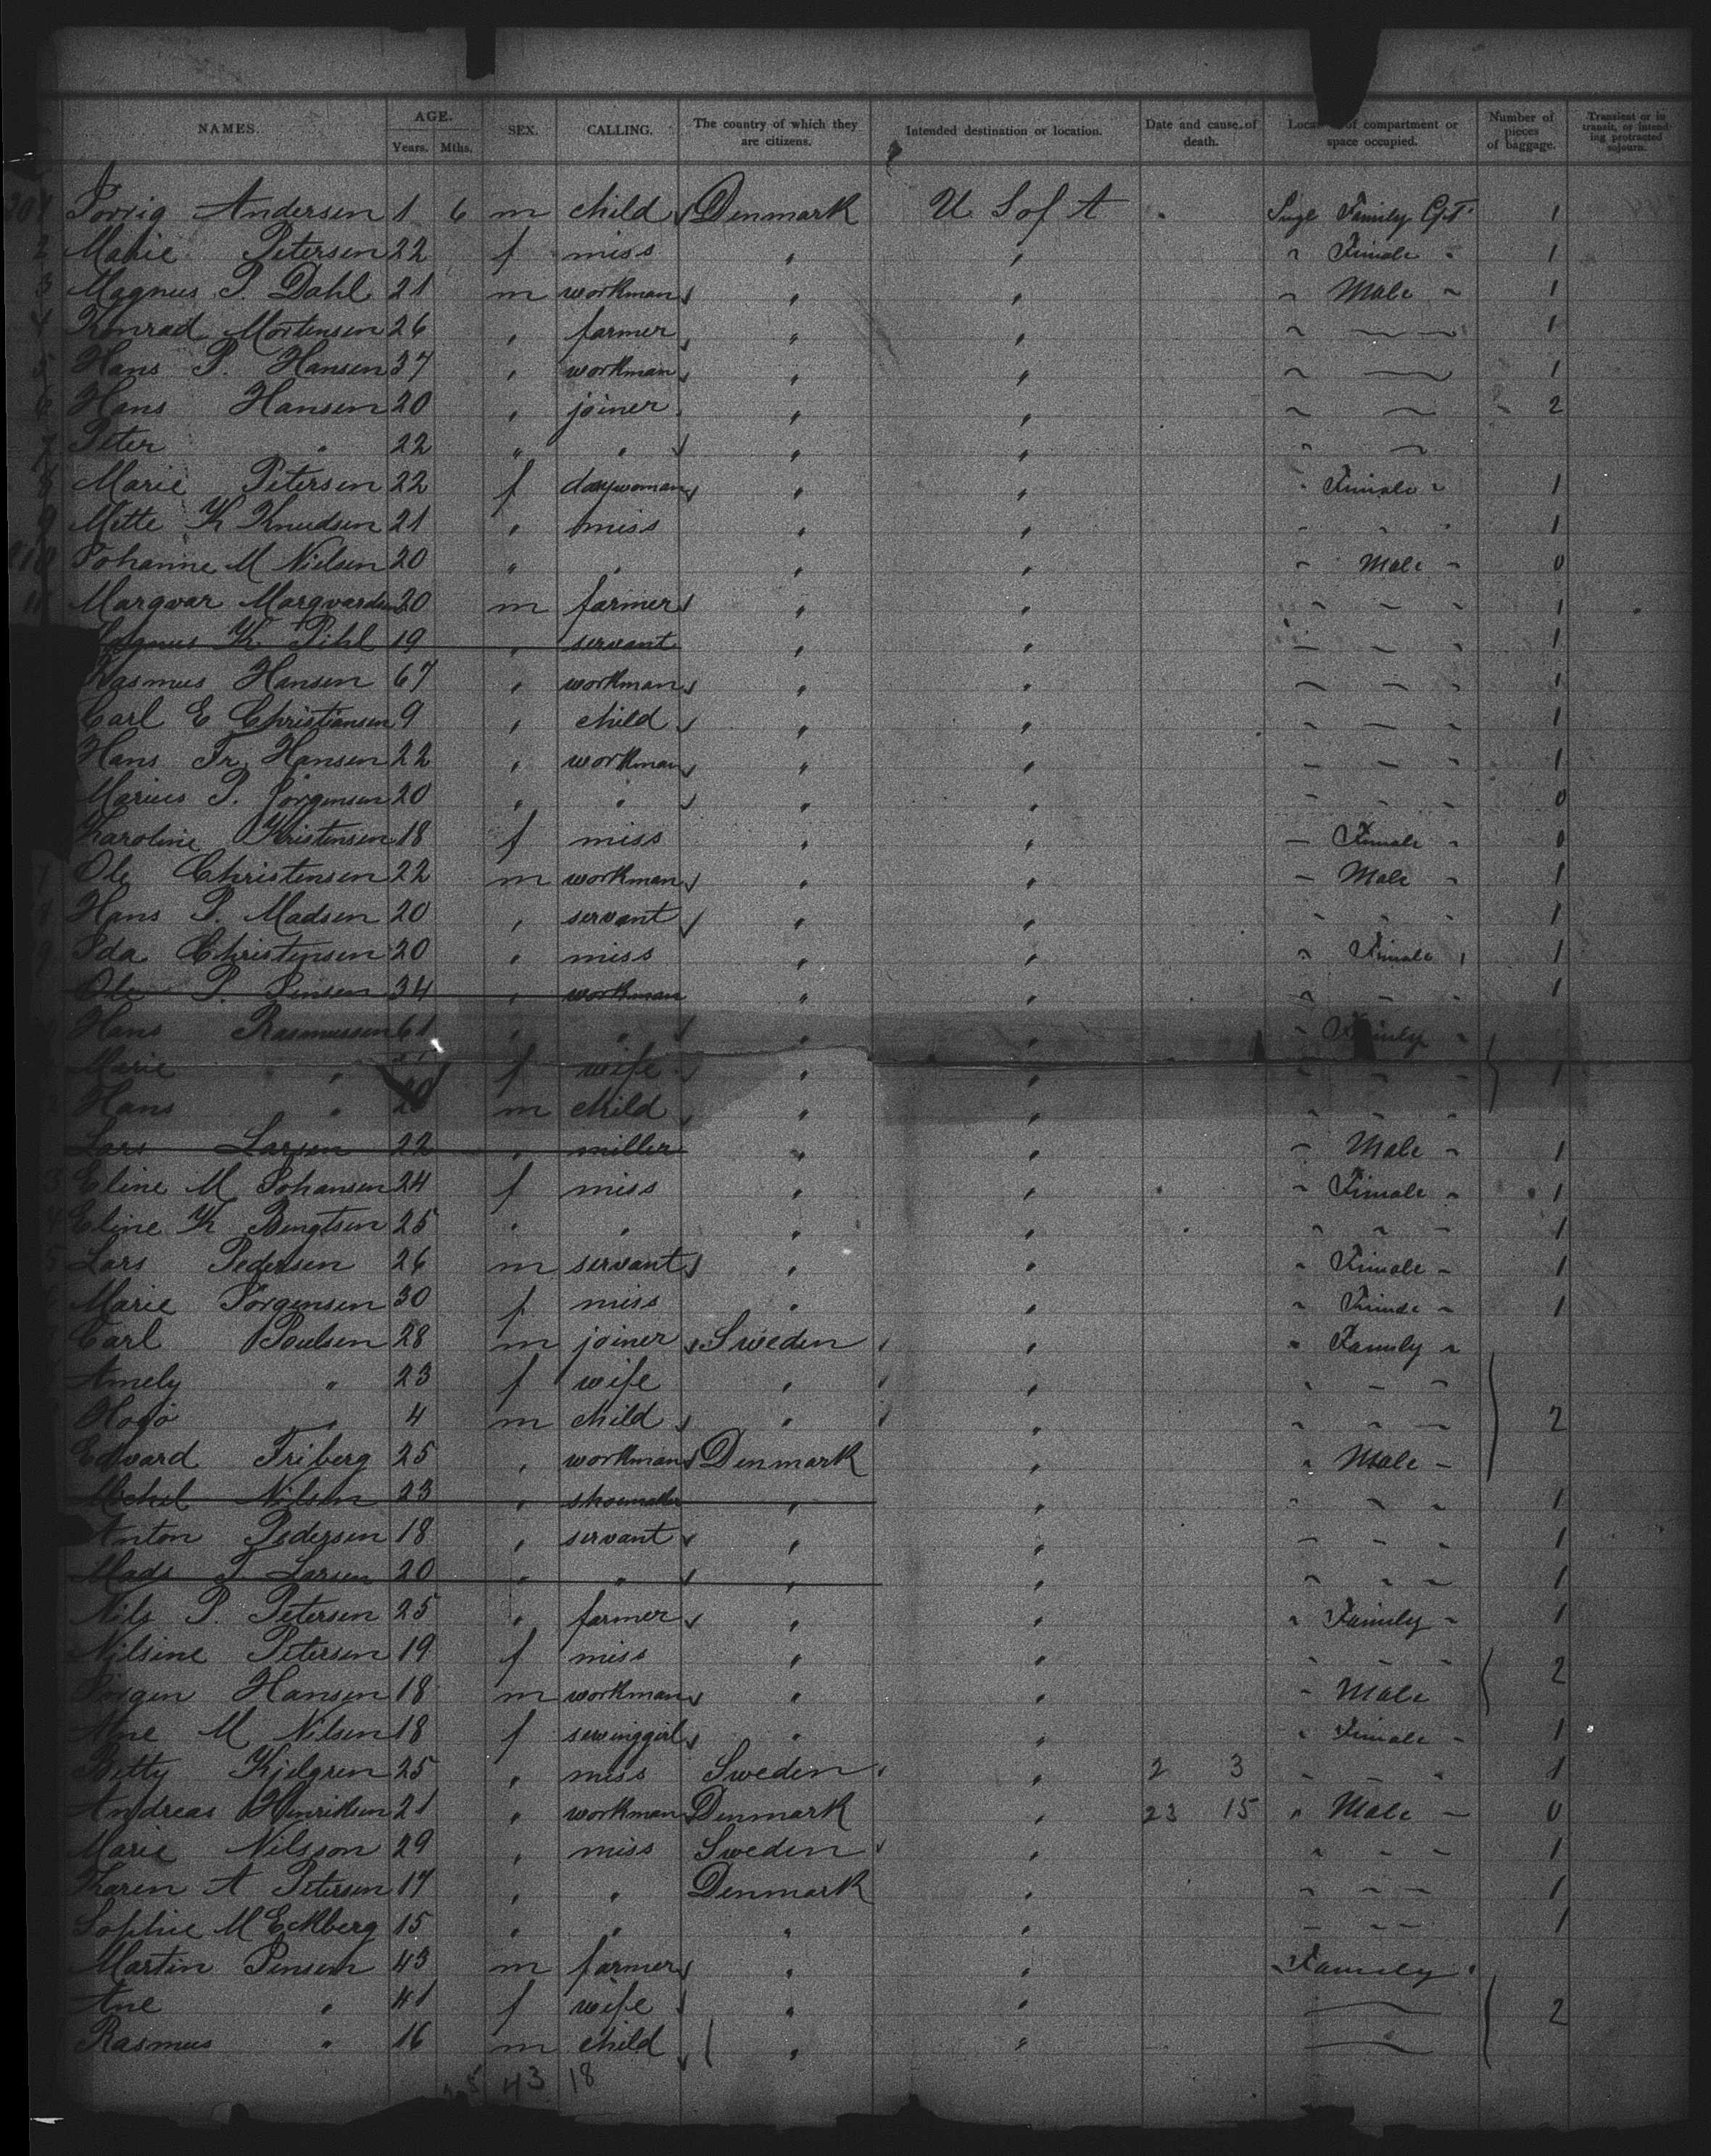 NAMES. AGE. Years. Mths. SEX. CALLING. The country of which they are citizens. Intended destination or location. Date and cause of death. Location of compartment or space occupied. Number of pieces of baggage. Transient or in transit, or intending protracted sojourn.
Andersen 1 6 m child Denmark U S of A Family 1
2 Marie Petersen 22 f miss " " " Female " 1
3 Magnus P. Dahl 21 m workman " " " Male " 1
4 Konrad Mortensen 26 " farmer " " " " 1
5 Hans P. Hansen 37 " workman " " " " 1
6 Hans Hansen 20 " joiner " " " " 2
7 Peter " 22 " " " " " "
8 Marie Petersen 22 f daywoman " " " Female " 1
9 Mette K Knudsen 21 " miss " " " " " 1
Johanne M Nielsen 20 " " " " " Male " 0
11 Marqvar Marqvardsen 20 m farmer " " " " " 1
K. Pihl 19 " servant " " " " " 1
Rasmus Hansen 67 " workman " " " " " 1
Carl E Christiansen 9 " child " " " " " 1
Hans Fr. Hansen 22 " workman " " " " " 1
Marius P. Jörgensen 20 " " " " " " " 0
Karoline Kristensen 18 f miss " " " Female " 0
Ole Christensen 22 m workman " " " Male " 1
Hans P. Madsen 20 " servant " " " " " 1
Ida Christensen 20 " miss " " " Female " 1
Ole P. Jensen 34 " workman " " " " " 1
Hans Rasmussen 61 " " " " " Family "
Marie " f wife " " " " " 1
Hans " m child " " " " "
Lars Larsen 22 " miller " " " Male " 1
3 Eline M Johansen 24 f miss " " " Female " 1
4 Eline K Bengtsen 25 " " " " " " " 1
5 Lars Pedersen 26 m servant " " " Female " 1
Marie Jörgensen 30 f miss " " " Female " 1
Carl Poulsen 28 m joiner Sweden " " Family "
Amely " 23 f wife " " " " "
" 4 m child " " " " " 2
Edvard Friberg 25 " workman Denmark " " Male "
Michel Nilsen 23 " shoemaker " " " " " 1
Anton Pedersen 18 " servant " " " " " 1
Mads J Larsen 20 " " " " " " " 1
Nils P. Petersen 25 " farmer " " " Family " 1
Nilsine Petersen 19 f miss " " " " " 2
Jörgen Hansen 18 m workman " " " Male
Ane M Nilsen 18 f sewinggirl " " " Female " 1
Betty Kjelgren 25 " miss Sweden " 2 3 " " " 1
Andreas Henriksen 21 " workman Denmark " 23 15 " Male " 0
Marie Nilsson 29 " miss Sweden " " " " 1
Karen A Petersen 17 " " Denmark " " " " 1
Sophie M Eckberg 15 " " " " " " " 1
Martin Jensen 43 m farmer " " Family "
Ane " 41 f wife " " " 2
Rasmus " 16 m child " " "
43 18